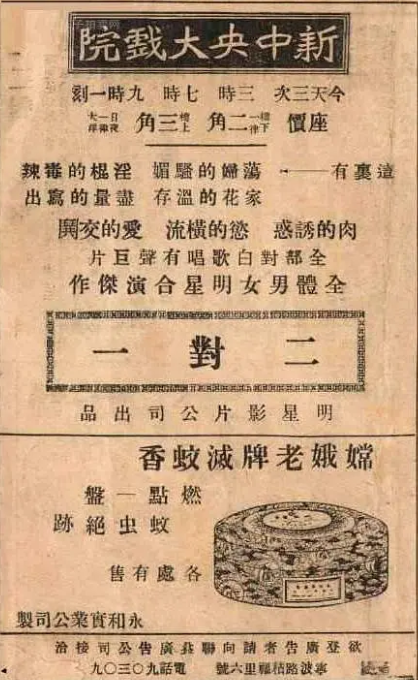 新中央大戲院
今天三次 三時 七時 九時一刻
座價 樓下一律二角 樓上三角 日夜一律大洋
這裏有——蕩婦的騷媚 淫棍的毒辣
家花的溫存 盡量的寫出
肉的誘惑 慾的橫流 愛的交鬬
全部對白歌唱有聲巨片
全體男女明星合演傑作
二對一
明星影片公司出品
嫦娥老牌滅蚊香
燃點一盤
蚊虫絕跡
各處有售
永和實業公司製
欲登廣告者請向聯益廣告公司接洽
寧波路里六號 電話九〇三〇九